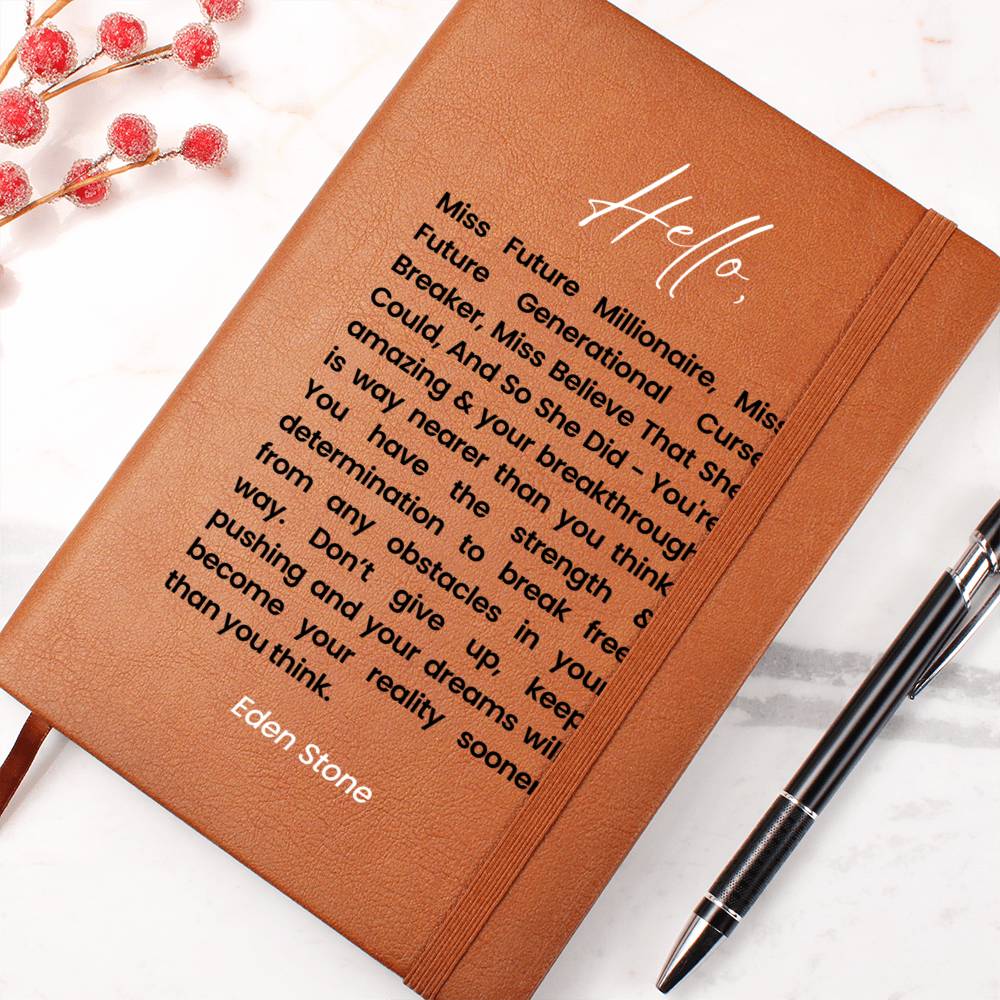 Hello,
Miss Future Millionaire, Miss
Future Generational Curse
Breaker, Miss Believe That She
Could, And So She Did – You're
amazing & your breakthrough
is way nearer than you think
You have the strength &
determination to break free
from any obstacles in your
way. Don't give up, keep
pushing and your dreams will
become your reality sooner
than you think.
Eden Stone